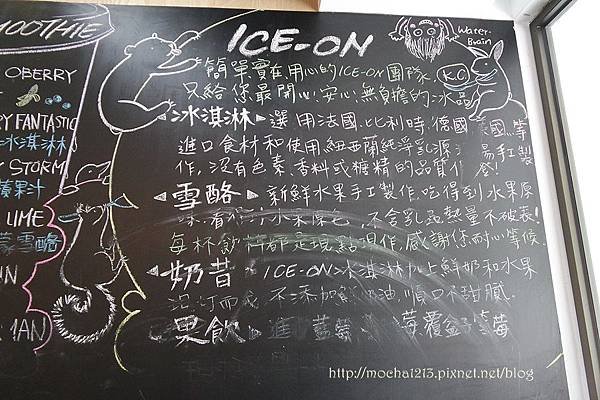 MOOTHIE
OBERRY
Y FANTASTIC
冰淇淋
Y STORM
蘋果汁
LIME
雪酪
MAN
ICE-ON
Water-Brain
K.C.
簡單實在用心的ICE-ON團隊
只給您最開心、安心、無負擔的冰品
冰淇淋 選用法國、比利時、德國 等
進口食材和使用紐西蘭純淨乳源 手工製
作,沒有色素、香料或糖精的品質
雪酪 新鮮水果手工製作,吃得到水果原
味,看 水果原色,不含乳品熱量不破表!
每杯飲料都是現點現作,感謝您耐心等候
奶昔 ICE-ON冰淇淋加上鮮奶和水果
打而成 不添加 奶油,順口不甜膩.
果飲 進 藍莓 莓覆盆 莓
http://mocha1213.pixnet.net/blog